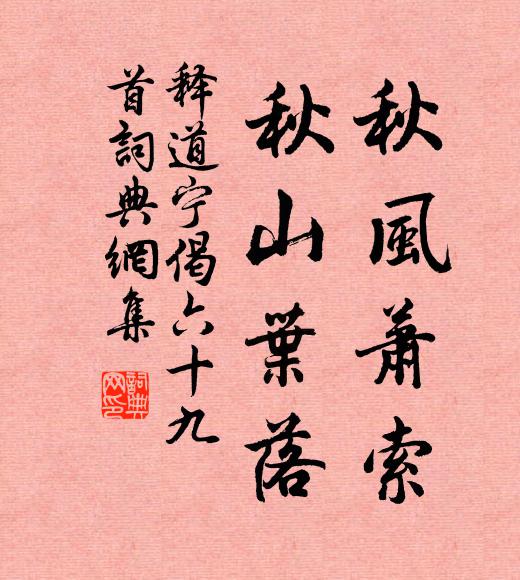 秋風蕭索
秋山葉落
释道宁偈六十九
首詞典網集
詞典
网印